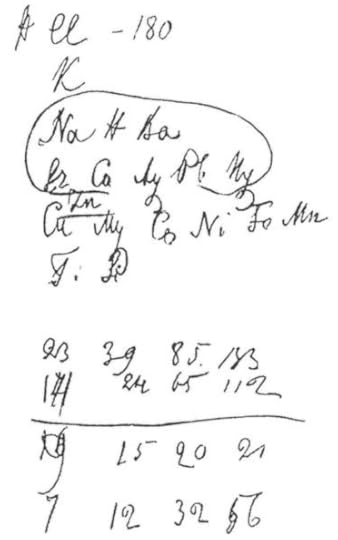 Cl - 180
K
Na H Ba
Sr Ca Ag Pb Hg
Zn
Cu Mg Co Ni Fe Mn
23 39 85. 133
24 65 112
15 20 21
7 12 32 56